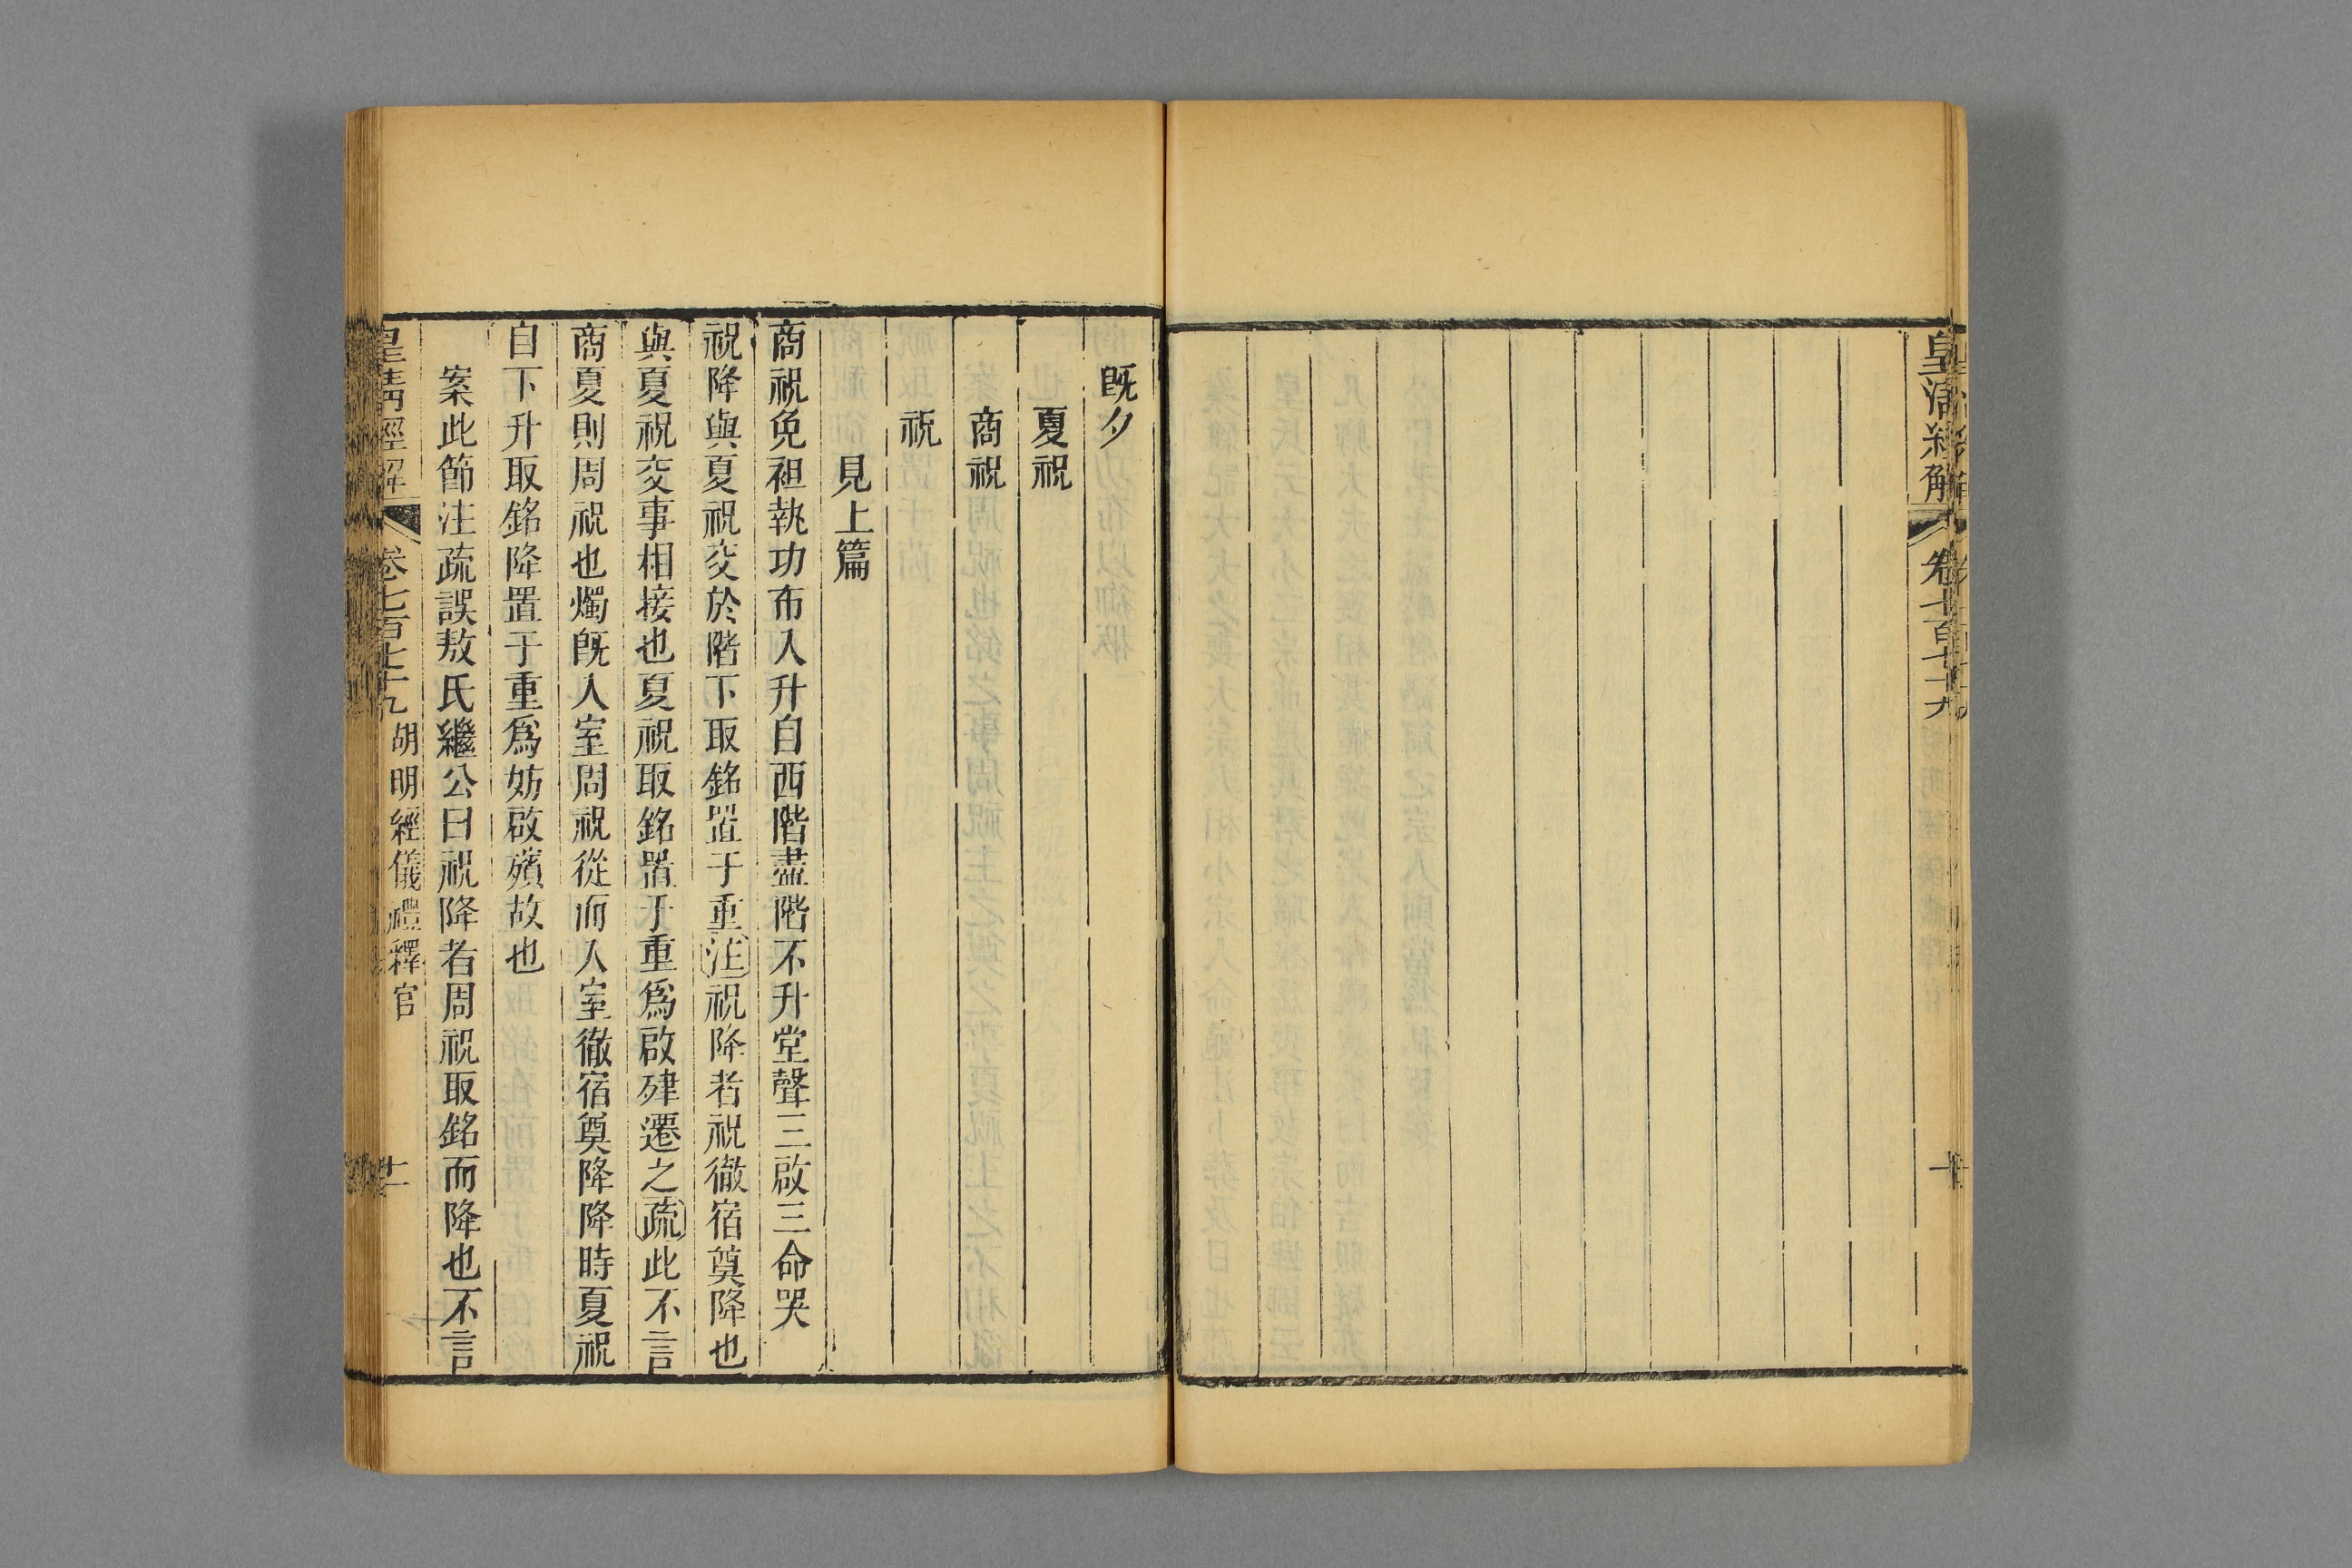 皇清經解
卷七百七十九
既夕
夏祝
商祝
祝
見上篇
商祝免袒執功布入升自西階盡階不升堂聲三啟三命哭
祝降與夏祝交於階下取銘置于重注祝降者祝徹宿奠降也
與夏祝交事相接也夏祝取銘置于重爲啟肂遷之疏此不言
商夏則周祝也燭既入室周祝從而入室徹宿奠降降時夏祝
自下升取銘降置于重爲妨啟殯故也
案此節注疏誤敖氏繼公曰祝降者周祝取銘而降也不言
皇清經解 卷七百七十九 胡明經儀禮釋官 十一